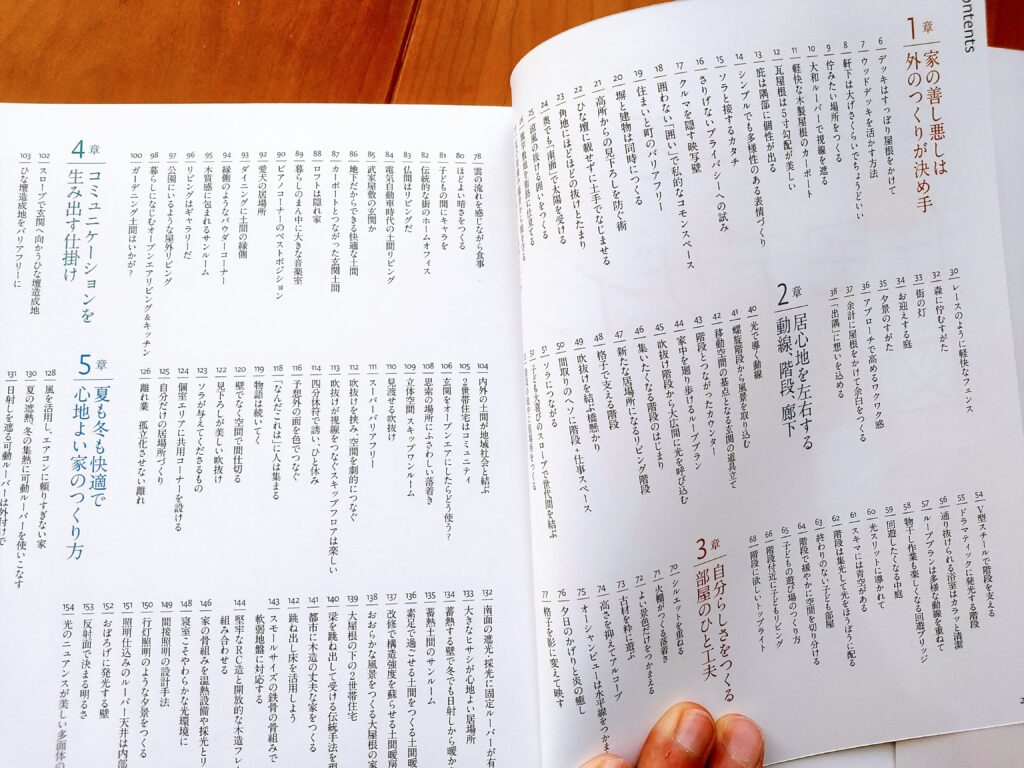 ontents
1章 家の善し悪しは
外のつくりが決め手
6 デッキはすっぽり屋根をかけて
7 ウッドデッキを活かす方法
8 軒下は大げさくらいでちょうどいい
9 佇みたい場所をつくる
10 大和ルーバーで視線を遮る
11 軽快な木製屋根のカーポート
12 瓦屋根は5寸勾配が美しい
13 庇は隅部に個性が出る
14 シンプルでも多様性のある表情づくり
15 ソラと接するカタチ
16 さりげないプライバシーへの試み
17 クルマを隠す映写壁
18 囲わない「囲い」で私的なコモンスペース
19 住まいと町のバリアフリー
20 塀と建物は同時につくる
21 高所からの見下ろしを防ぐ術
22 ひな壇に載せずに土手でなじませる
23 角地にほどよい抜けとたまり
24 奥でも「南面」で太陽を受ける
25 涼風の抜ける囲いをつくる
30 レースのように軽快なフェンス
32 森に佇むすがた
33 街の灯
34 お迎えする庭
35 夕景のすがた
36 アプローチで高めるワクワク感
37 余計に屋根をかけて余白をつくる
38 「出隅」に想いを込める
2章 居心地を左右する
動線、階段、廊下
40 光で導く動線
41 螺旋階段から風景を取り込む
42 移動空間の基点となる玄関の道具立て
43 階段とつながったカウンター
44 家中を廻り歩けるループプラン
45 吹抜け階段から大広間に光を呼び込む
46 集いたくなる階段のはじまり
47 新たな居場所になるリビング階段
48 格子で支える階段
49 吹抜けを結ぶ橋懸かり
50 間取りのヘソに階段+仕事スペース
51 ソラにつながる
54 V型スチールで階段を支える
55 ドラマティックに発光する階段
56 通り抜けられる浴室はカラッと清潔
57 ループプランは多様な動線を重ねて
58 物干し作業も楽しくなる回遊ブリッジ
59 回遊したくなる中庭
60 光スリットに導かれて
61 スキマには青空がある
62 階段は集光して光をほうぼうに配る
63 終わりのない子ども部屋
64 階段で緩やかに空間を切り分ける
65 子どもの遊び場のつくり方
66 階段付近に子どもがいる
68 階段に欲しいトップライト
3章 自分らしさをつくる
部屋のひと工夫
70 シルエットを重ねる
71 六幅がつくる落着き
72 よい景色だけをつかまえる
73 古材を粋に遊ぶ
74 高さを抑えてアルコーブ
75 オーシャンビューは水平線をつかま
76 夕日のかげりと炎の癒し
77 格子を影に変えて映す
78 雲の流れを感じながら食事
80 ほどよい暗さをつくる
81 子どもの間にキャラを
82 伝統的な街のホームオフィス
83 仏間はリビングだ
84 電気自動車時代の土間リビング
85 武家屋敷の玄関か
86 地下だからできる快適な土間
87 カーポートとつながった玄関土間
88 ロフトは隠れ家
89 暮らしのまん中に大きな音楽室
90 ピアノコーナーのベストポジション
92 愛犬の居場所
93 ダイニングに土間の縁側
94 縁側のようなパウダーコーナー
95 木質感に包まれるサンルーム
96 リビングはギャラリーだ
97 公園にいるような屋外リビング
98 暮らしになじむオープンエアリビング&キッチン
100 ガーデニング土間はいかが?
4章 コミュニケーションを
生み出す仕掛け
102 スロープで玄関へ向かうひな壇造成地
103 ひな壇造成地をバリアフリーに
104 内外の土間が地域社会と結ぶ
105 2世帯住宅はコミュニティ
106 玄関をオープンエアにしたらどう使う?
108 思索の場所にふさわしい落着き
109 立体空間 スキップワンルーム
110 見渡せる吹抜け
111 スーパーバリアフリー
112 吹抜けを挟み、空間を劇的につなぐ
113 吹抜けが視線をつなぐスキップフロアは楽しい
114 四分休符で誘い、ひと休み
116 予想外の面を色でつなぐ
118 「なんだこれは」に人は集まる
119 物語は続いてく
120 壁でなく空間で間仕切る
122 見下ろみしが美しい吹抜け
123 ソラが与えてくださるもの
124 個室エリアに共用コーナーを設ける
125 自分だけの居場所づくり
126 離れ業 孤立化させない離れ
5章 夏も冬も快適で
心地よい家のつくり方
128 風を活用し、エアコンに頼りすぎない家
130 夏の遮熱、冬の集熱に可動ルーバーを使いこなす
131 日射しを遮る可動ルーバーは外付けで
132 南面の遮光・採光に固定ルーバーが有
133 大きなヒサシが心地よい居場所
134 蓄熱する壁で冬でも日射しから暖か
135 蓄熱土間のサンルーム
136 素足で過ごせる土間をつくる土間暖
137 改修で構造強度を蘇らせる土間暖房
138 おおらかな風景をつくる大屋根の家
139 大屋根の下の2世帯住宅
140 梁を跳ね出して受ける伝統手法を現
141 都市に木造の丈夫な家をつくる
142 跳ね出し床を活用しよう
143 スモールサイズの鉄骨の骨組みで
軟弱地盤に対応する
144 堅牢なRC造と開放的な木造フレ
組み合わせる
146 家の骨組みを温熱設備や採光とリ
148 寝室こそやわらかな光環境に
149 間接照明の設計手法
150 行灯照明のような夕景をつくる
151 照明仕込みのルーバー天井は内部
152 おぼろげに発光する壁
153 反射面で決まる明るさ
154 光のニュアンスが美しい多面体の